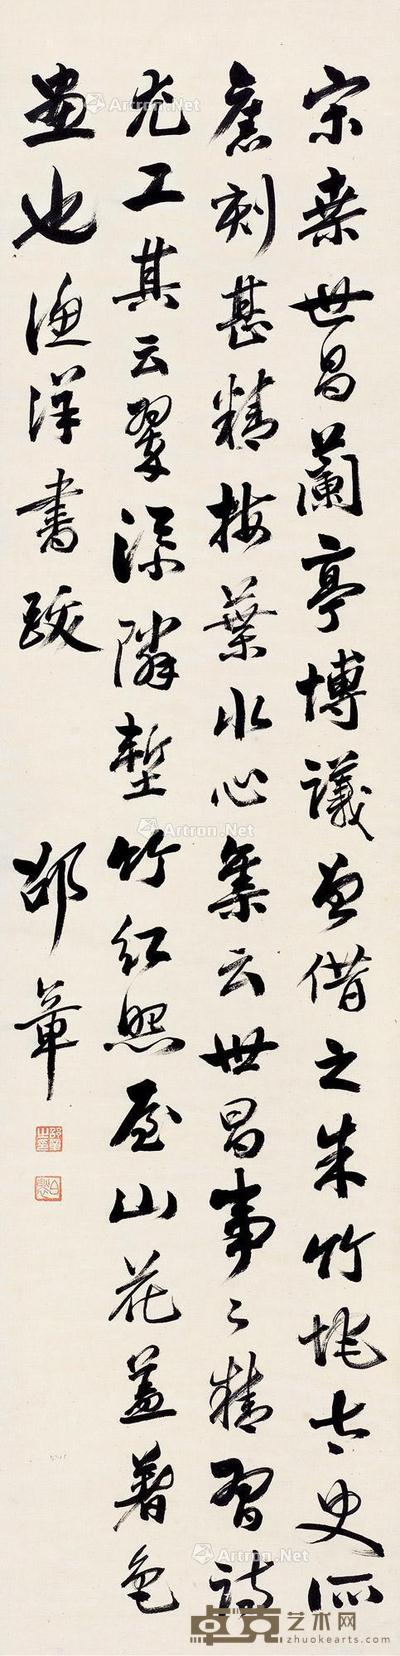 宋桑世昌蘭亭博議曾借之朱竹垞太史所
舊刻甚精按葉水心集云世昌事々精習詩
尤工其云翠添隣塹竹紅照屋山花蓋著色
畫也漁洋書跋 邵章
Artron.Net
Artron.Net
Artron.Net
卓克艺术网
www.zhuokearts.com